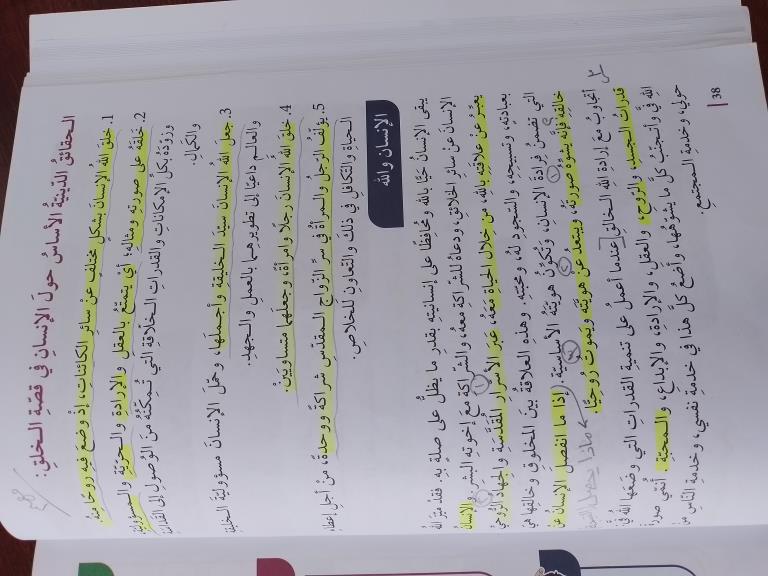 الحقائق الدّينيّة الأساس حول الإنسان في قصّة الخلق:
1. خلق الله الإنسان بشكل مختلف عن سائر الكائنات، إذ وضع فيه روحًا منه.
2. خلقه على صورته ومثاله، أي يتمتّع بالعقل والإرادة والحرّيّة والمسؤوليّة
وزوّده بكلّ الإمكانات والقدرات الخلّاقة التي تُمكّنه من الوصول إلى القداسة
والكمال.
3. جعل الله الإنسان سيّد الخليقة وأجملها، وحمّل الإنسان مسؤوليّة الخليقة
والعالم داعيًا إلى تطويرهما بالعمل والجهد.
4. خلق الله الإنسان رجلًا وامرأة، وجعلهما متساويين.
5. يؤلّف الرّجل والمرأة في سرّ الزّواج المقدّس شراكة ووحدة، من أجل إعطاء
الحياة والتّكافل في ذلك والتّعاون للخلاص.
الإنسان والله
يبقى الإنسان حيًّا بالله ومُحافظًا على إنسانيّته بقدر ما يظلّ على صلة به. فقد ميّز الله
الإنسان عن سائر الخلائق، ودعاه للشّراكة معه، والشّراكة مع إخوته البشر. والإنسان
يعبّر عن علاقته بالله، من خلال الحياة معه، عبر الأسرار المقدّسة والجهاد الرّوحيّ
بعبادته، وتسبيحه، والسّجود له، ومحبّته. وهذه العلاقة بين المخلوق وخالقها هي
التي تضمن فرادة الإنسان، وتكوّن هويّته الأساسيّة. إذا ما انفصل الإنسان عن
خالقه فإنّه يشوّه صورته، ويبتعد عن هويّته ويموت روحيًّا.
ماذا يحصل
أتجاوب مع إرادة الله الخالق عندما أعمل على تنمية القدرات التي وضعها الله فيّ:
قدرات الجسد والرّوح، والعقل، والإرادة، والإبداع، والمحبّة. أنمّي صورة
الله فيّ وأتجنّب كلّ ما يشوّهها، وأضع كلّ هذا في خدمة نفسي، وخدمة النّاس من
حولي، وخدمة المجتمع.
38